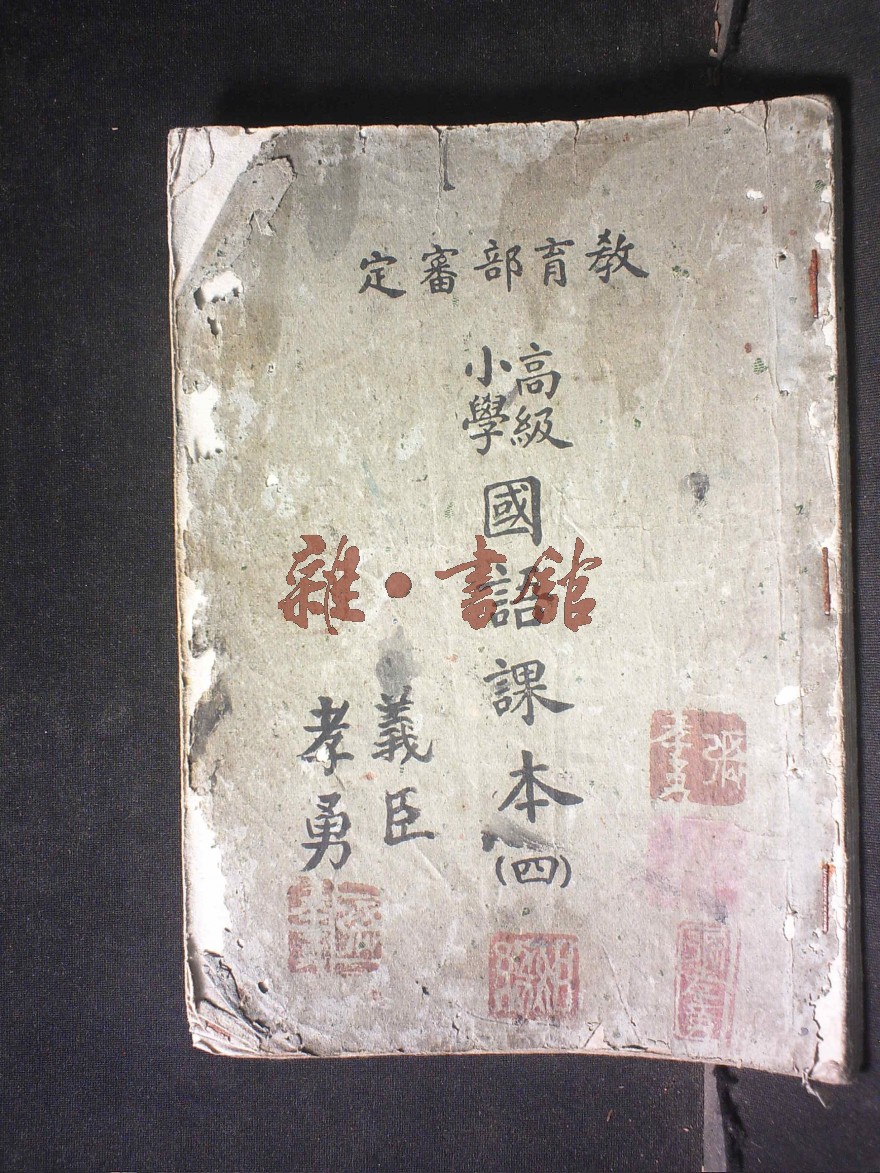 教育部審定
高級
小學
國語課本(四)
義臣
孝勇
雜·書館
孝勇